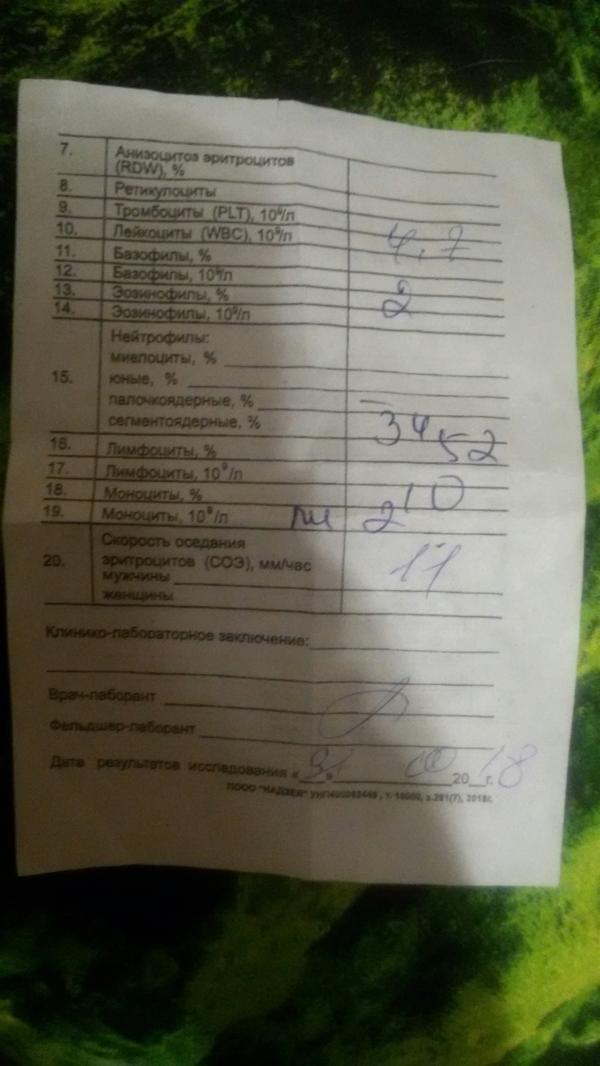 7. Анизоцитоз эритроцитов (RDW), %
8. Ретикулоциты
9. Тромбоциты (PLT), 10⁹/л
10. Лейкоциты (WBC), 10⁹/л 4,7
11. Базофилы, %
12. Базофилы, 10⁹/л
13. Эозинофилы, % 2
14. Эозинофилы, 10⁹/л
15. Нейтрофилы:
миелоциты, %
юные, %
палочкоядерные, %
сегментоядерные, % 34
16. Лимфоциты, % 52
17. Лимфоциты, 10⁹/л
18. Моноциты, % 10
19. Моноциты, 10⁹/л 2
20. Скорость оседания
эритроцитов (СОЭ), мм/час 11
мужчины
женщины
Клинико-лабораторное заключение:
Врач-лаборант
Фельдшер-лаборант
Дата результатов исследования « » 2018 г.
ПООО "НАДЗЕЯ"